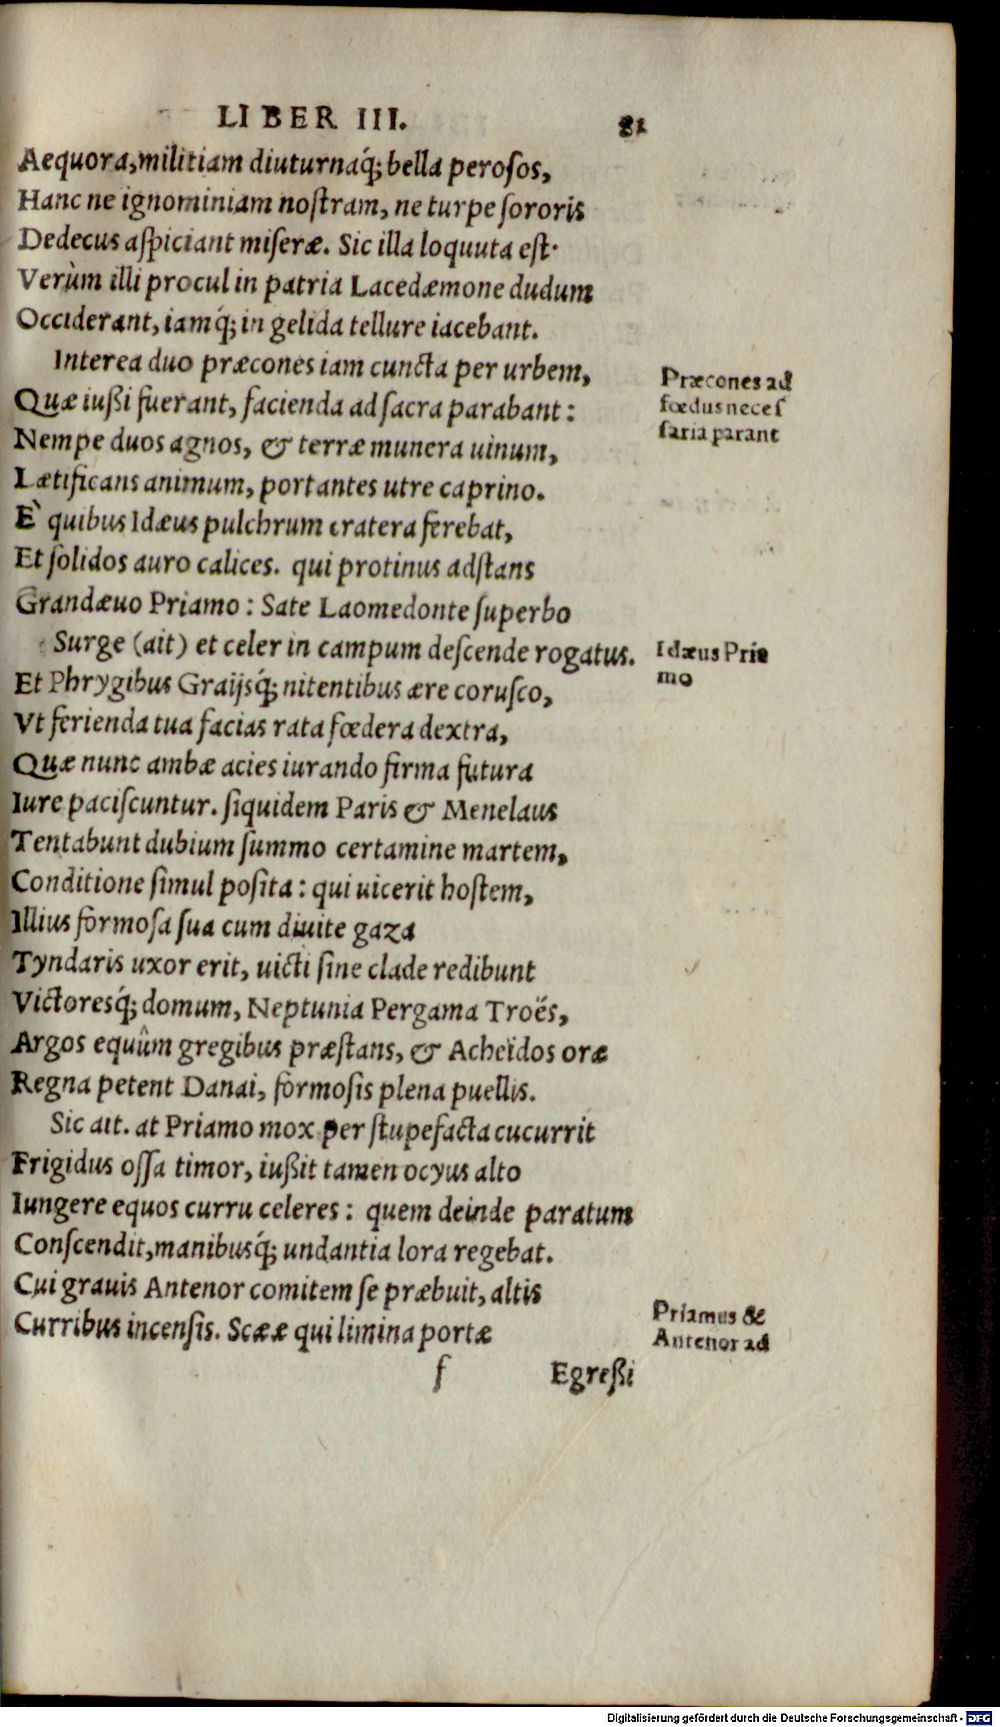 LIBER III. 81
Aequora, militiam diuturnaq́; bella perosos,
Hanc ne ignominiam nostram, ne turpe sororis
Dedecus aspiciant miseræ. Sic illa loquuta est.
Verùm illi procul in patria Lacedæmone dudum
Occiderant, iamq́; in gelida tellure iacebant.
Interea duo præcones iam cuncta per urbem,
Præcones ad
Quæ iußi fuerant, facienda ad sacra parabant:
fœdus neces
Nempe duos agnos, & terræ munera uinum,
saria parant
Lætificans animum, portantes utre caprino.
È quibus Idæus pulchrum cratera ferebat,
Et solidos auro calices. qui protinus adstans
Grandæuo Priamo: Sate Laomedonte superbo
Surge (ait) et celer in campum descende rogatus.
Idæus Pria
Et Phrygibus Graijsq́; nitentibus ære corusco,
mo
Vt ferienda tua facias rata fœdera dextra,
Quæ nunc ambæ acies iurando firma futura
Iure paciscuntur. siquidem Paris & Menelaus
Tentabunt dubium summo certamine martem,
Conditione simul posita: qui uicerit hostem,
Illius formosa sua cum diuite gaza
Tyndaris uxor erit, uicti sine clade redibunt
Victoresq́; domum, Neptunia Pergama Troës,
Argos equûm gregibus præstans, & Acheïdos oræ
Regna petent Danai, formosis plena puellis.
Sic ait. at Priamo mox per stupefacta cucurrit
Frigidus ossa timor, iußit tamen ocyus alto
Iungere equos curru celeres: quem deinde paratum
Conscendit, manibusq́; undantia lora regebat.
Cui grauis Antenor comitem se præbuit, altis
Priamus &
Curribus incensis. Scææ qui limina portæ
Antenor ad
f Egreßi
Digitalisierung gefördert durch die Deutsche Forschungsgemeinschaft - DFG